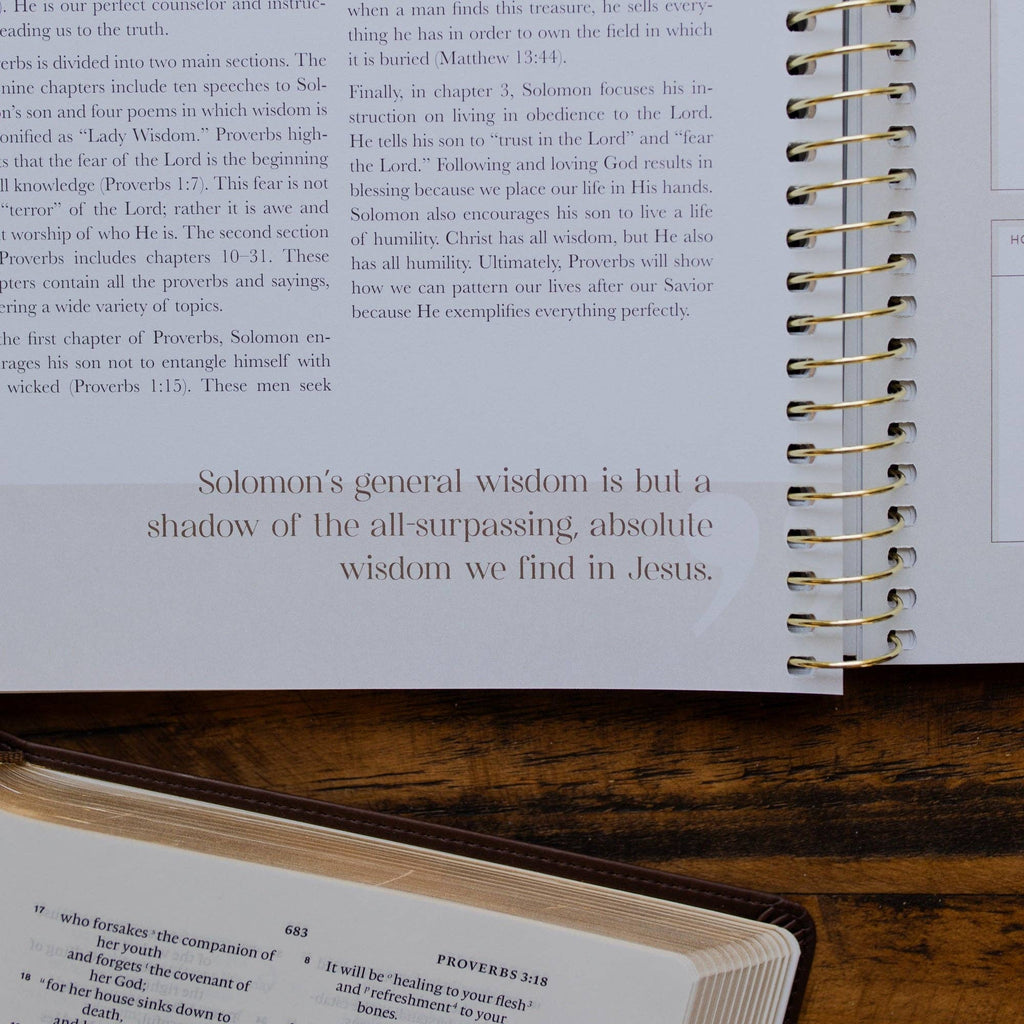 He is our perfect counselor and instruc-
us to the truth.
is divided into two main sections. The
nine chapters include ten speeches to Sol-
son and four poems in which wisdom is
as “Lady Wisdom.” Proverbs high-
that the fear of the Lord is the beginning
knowledge (Proverbs 1:7). This fear is not
“terror” of the Lord; rather it is awe and
worship of who He is. The second section
Proverbs includes chapters 10–31. These
contain all the proverbs and sayings,
a wide variety of topics.
the first chapter of Proverbs, Solomon en-
his son not to entangle himself with
wicked (Proverbs 1:15). These men seek
when a man finds this treasure, he sells every-
thing he has in order to own the field in which
it is buried (Matthew 13:44).
Finally, in chapter 3, Solomon focuses his in-
struction on living in obedience to the Lord.
He tells his son to “trust in the Lord” and “fear
the Lord.” Following and loving God results in
blessing because we place our life in His hands.
Solomon also encourages his son to live a life
of humility. Christ has all wisdom, but He also
has all humility. Ultimately, Proverbs will show
how we can pattern our lives after our Savior
because He exemplifies everything perfectly.
Solomon’s general wisdom is but a
shadow of the all-surpassing, absolute
wisdom we find in Jesus.
683
PROVERBS 3:18
17 who forsakes the companion of
her youth
and forgets the covenant of
her God;
18 for her house sinks down to
death,
8 It will be healing to your flesh
and refreshment to your
bones.